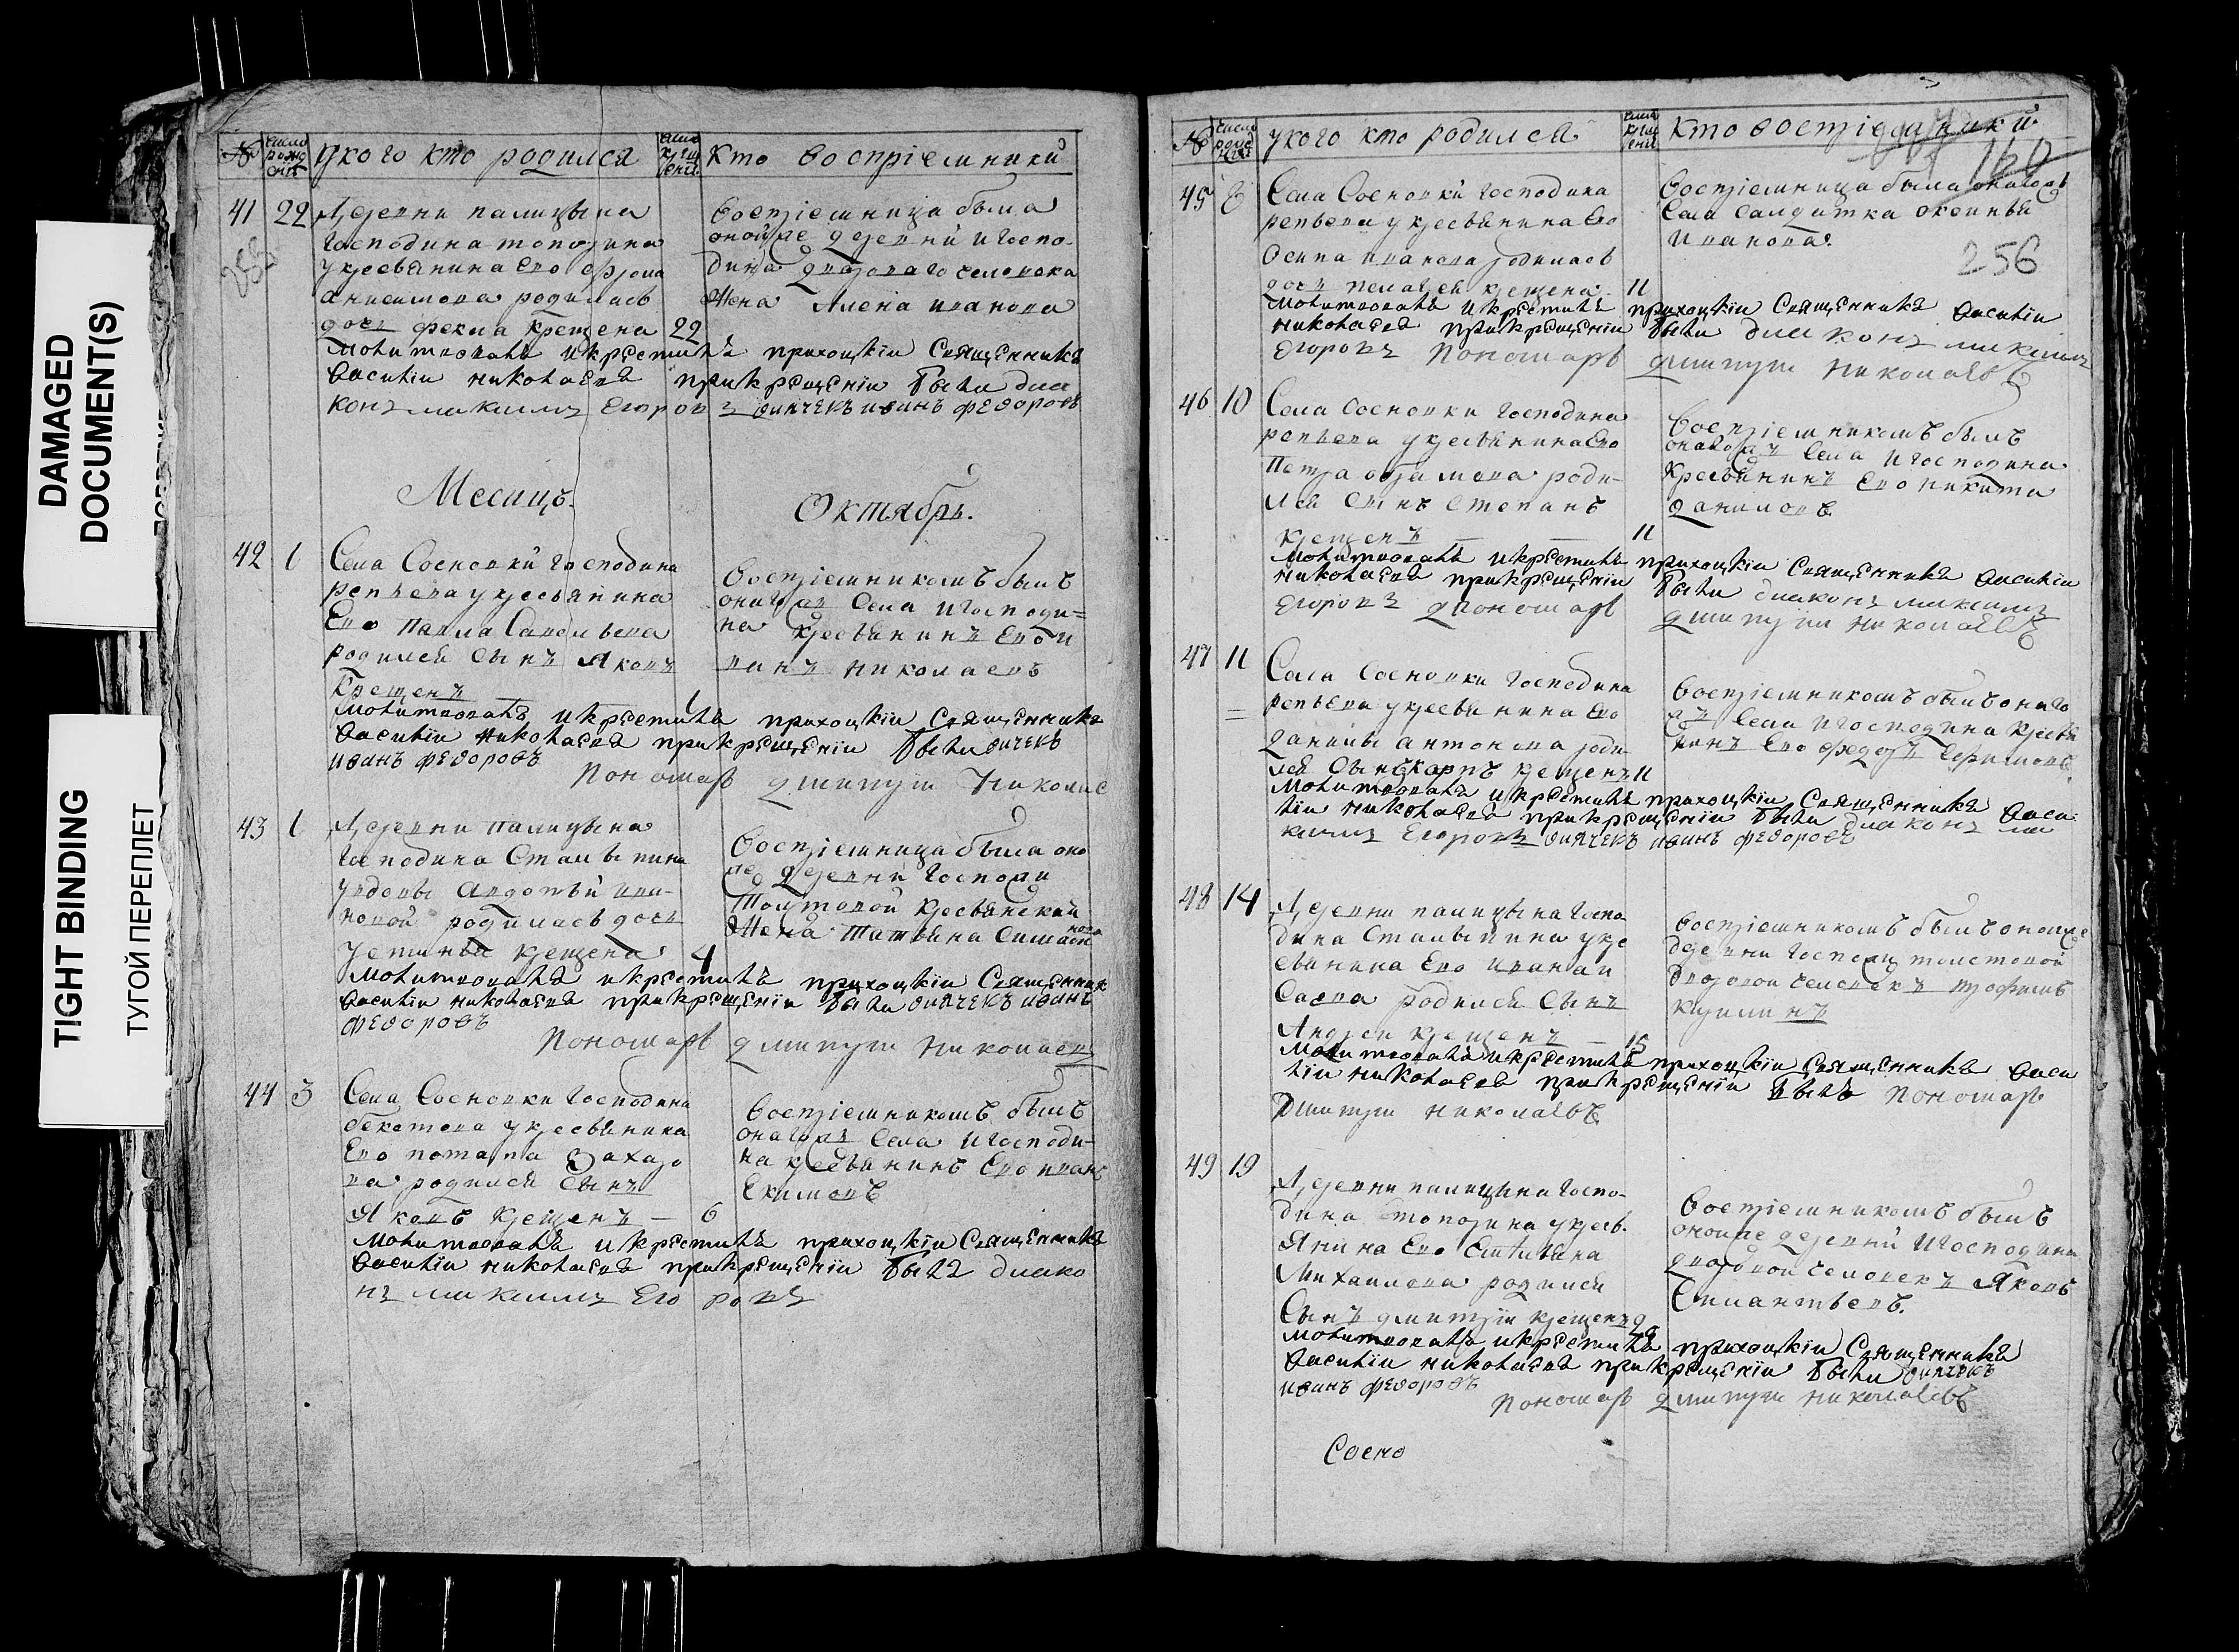 DAMAGED
DOCUMENT(S)
TIGHT BINDING
ТУГОЙ ПЕРЕПЛЕТ
№ число рождения укого кто родился число крещения Кто воспрiемники
41 22 Деревни палицына
Господина топорина
укресьянина Ево
Анисимова родилась
дочь фекла крещена 22
воспрiемница была
оной же деревни игоспо-
дина дворового человека
Жена Алена иванова
молитвовалъ икрестилъ приходцкiи Священникъ
Василiи николаевъ прикрещенiи были дия
конъ максимъ Егоровъ дьячекъ иванъ федоровъ
Месяцъ Октябрь.
42 1 Села Сосновки господина
репьева укресьянина
Ево павла Савельева
родился сынъ Яковъ
Крещенъ 1
воспрiемникомъ былъ
оногожъ Села игосподи=
на кресьянинъ Ево и
ванъ николаевъ
молитвовалъ икрестилъ приходцкiи Священникъ
Василiи николаевъ прикрещенiи были дьячекъ
иванъ федоровъ
Пономарь дмитрiи Николае
43 1 Деревни палицына
господина Сталыпина
увдовы авдотьи ива-
новой родилась дочь
устинья крещена 4
воспрiемница была оно
же деревни госпожи
Толстовой кресьянской
Жена Татьяна Симаонова
молитвовалъ икрестилъ приходцкiи Священник
Василiи николаевъ прикрещенiи были дьячекъ иванъ
федоровъ
Пономарь дмитрiи николаевъ
44 3 Села Сосновки господина
бекетова укресьянина
Ево потапа Захаро
ва родился Сынъ
Яковъ крещенъ — 6
воспрiемникомъ былъ
оногожъ Села игосподи-
на кресьянинъ Ево иванъ
Екимовъ
молитвовалъ икрестилъ приходцкiи Священникъ
Василiи николаевъ прикрещенiи былъ диако
нъ максимъ Егоровъ
№ число рождения укого кто родился число крещения Кто воспрiемники
160
256
45 8 Села Сосновки господина
репьева укресьянина Ево
Осипа иванова родилась
дочь пелагея крещена 11
воспрiемница была оногожъ
Села Салдатка оксинья
иванова.
молитвовалъ икрестилъ приходцкiи Священникъ Василiи
николаевъ прикрещенiи были диаконъ максимъ
Егоровъ Пономарь дмитрiи николаевъ
46 10 Села Сосновки господина
репьева укресьянина Ево
Петра абрамова роди-
лся сынъ Степанъ
крещенъ — 11
воспрiемникомъ былъ
оногожъ Села игосподина
кресьянинъ Ево никита
даниловъ
молитвовалъ икрестилъ приходцкiи Священникъ Василiи
николаевъ прикрещенiи были диаконъ максимъ
Егоровъ Пономарь дмитрiи николаевъ
47 11 Села Сосновки господина
репьева укресьянина Ево
данилы антонова роди
лся Сынъ карпъ крещенъ 11
воспрiемникомъ былъ оного
жъ Села игосподина кресья
нинъ Ево федоръ Ефимовъ
молитвовалъ икрестилъ приходцкiи Священникъ Васи
лiи николаевъ прикрещенiи были диаконъ ма
ксимъ Егоровъ дьячекъ иванъ федоровъ
48 14 Деревни палицына госпо
дина Сталыпина укре
сьянина Ево ивана и
саева родился Сынъ
Андреи крещенъ — 15
воспрiемникомъ былъ оной же
деревни госпожи толстовой
дворовой человекъ трофимъ
молитвовалъ икрестилъ приходцкiи Священникъ Васи
лiи николаевъ прикрещенiи былъ пономарь
Дмитрiи николаевъ
49 19 Деревни палицына госпо-
дина топорина укресь-
янина Ево
Михаилова родился
Сынъ дмитрiи крещенъ
воспрiемникомъ былъ
оной же деревни игосподина
дворовой человекъ Яковъ
молитвовалъ икрестилъ приходцкiи Священникъ
Василiи николаевъ прикрещенiи были дьячекъ
иванъ федоровъ
пономарь дмитрiи николаевъ
Сосно